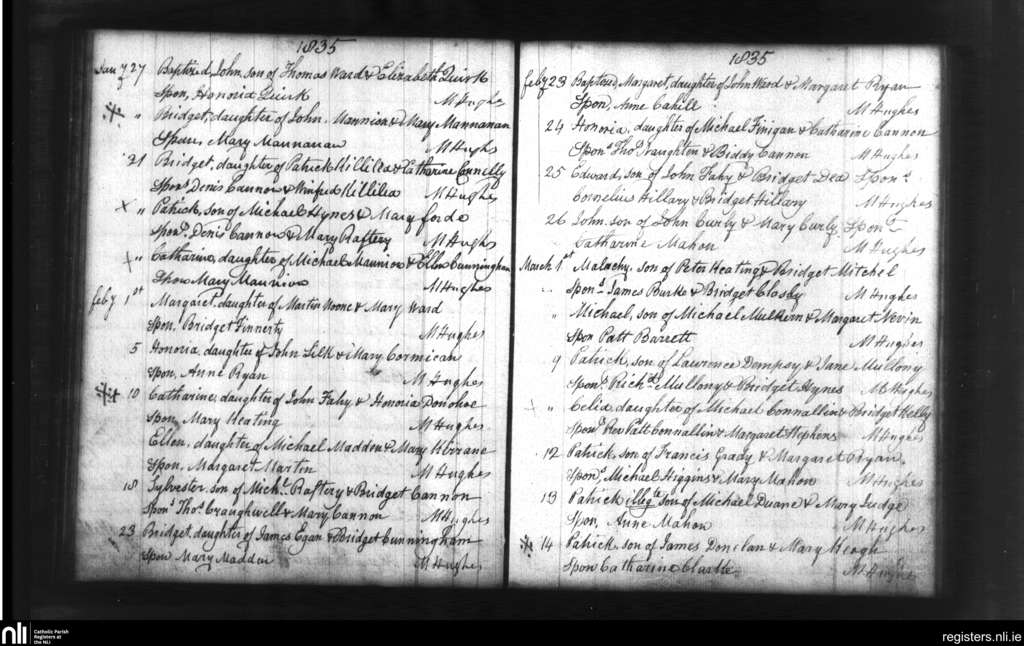 1835
Jany 27 Baptized, John, son of Thomas Ward & Elizabeth Quirk
Spon, Honoria Quirk M Hughes
" Bridget, daughter of John Mannion & Mary Mannanan
Spon, Mary Mannanan M Hughs
31 Bridget, daughter of Patrick Killilea & Catharine Connelly
Spons Denis Cannon & Winifred Killilea M Hughes
X " Patrick, son of Michael Hynes & Mary forde
Spons. Denis Cannon & Mary Raftery M Hughs
X " Catharine, daughter of Michael Mannion & Ellen Cunningham
Spon Mary Mannion M Hughes
feby 1st Margaret, daughter of Martin Noone & Mary Ward
Spon. Bridget Finnerty M Hughes
5 Honoria, daughter of John Silk & Mary Cormican
Spon, Anne Ryan M Hughes
10 Catharine, daughter of John Fahy & Honoria Donohoe
Spon, Mary Keating M Hughes
Ellen, daughter of Michael Madden & Mary Kirrane
Spon, Margaret Martin M Hughes
18 Sylvester, son of Michl. Raftery & Bridget Cannon
Spons Thos. Craughwell & Mary Cannon M Hughes
23 Bridget, daughter of James Egan & Bridget Cunningham
Spon Mary Madden M Hughs
1835
feby 23 Baptized, Margaret, daughter of John Ward & Margaret Ryan
Spon, Anne Cahill M Hughes
24 Honoria, daughter of Michael Finigan & Catharine Cannon
Spons Thos. Naughten & Biddy Cannon M Hughes
25 Edward, son of John Fahy & Bridget Dea Spons
Cornelius Hillary & Bridget Hillary M Hughes
26 John, son of John Curly & Mary Curly Spon
Catharine Mahon M Hughes
March 1st Malachy, son of Peter Keating & Bridget Mitchel
" Spons James Burke & Bridget Closby M Hughes
" Michael, son of Michael Mulkern & Margaret Nevin
Spon Patt Barrett M Hughes
9 Patrick, son of Lawrence Dempsy & Jane Mullony
Spons Richd. Mullony & Bridget Hynes M Hughes
" Celia, daughter of Michael Connallin & Bridget Kelly
Spons Rev Patt Connallin & Margaret Stephens M Hughes
12 Patrick, son of Francis Grady & Margaret Ryan
Spons, Michael Higgins & Mary Mahon M Hughes
13 Patrick illegte son of Michael Duane & Mary Judge
Spon, Anne Mahon M Hughes
14 Patrick, son of James Donelan & Mary Keogh
Spon Catharine Clarke M Hughes
nli Catholic Parish
Registers at
the NLI
registers.nli.ie